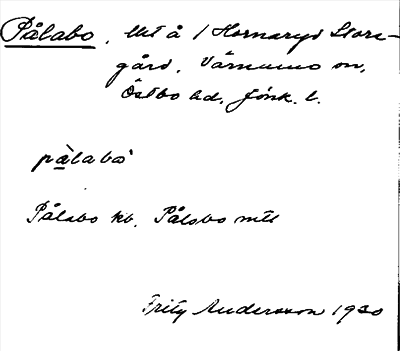 Pålabo, lht å 1 Hornaryd Stora-
gård, Värnamo sn,
Östbo hd, Jönk. l.
pàlabò
Pålabo kb, Pålabo mtl
Fritz Andersson 1930